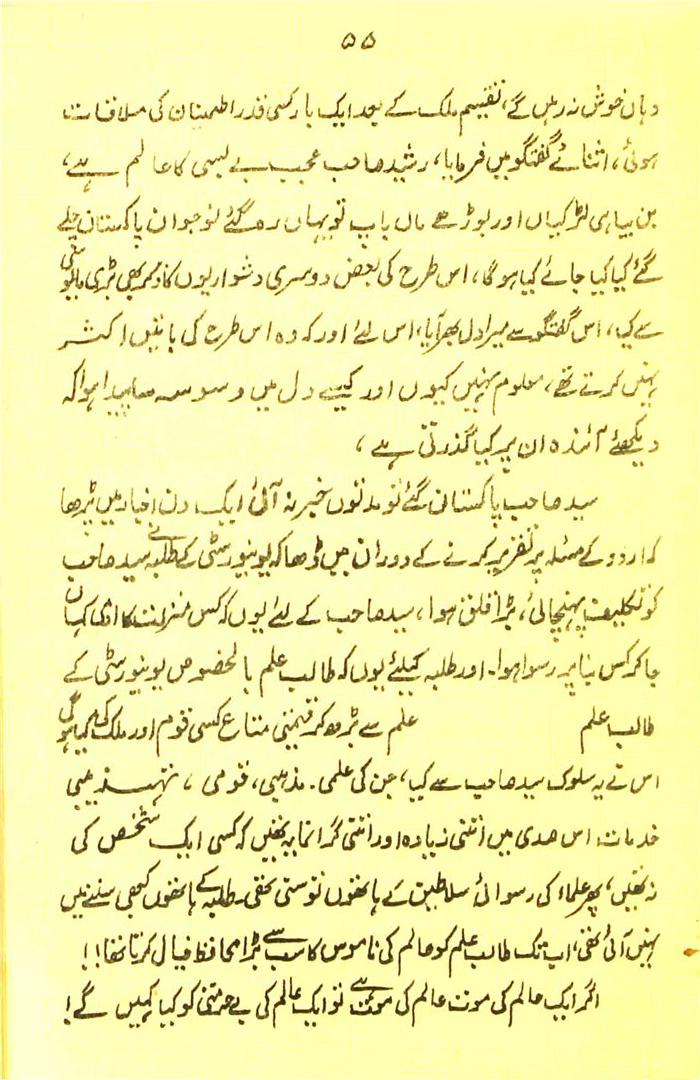 ۵۵
وہاں خوش نہ رہیں گے، تقسیم ملک کے بعد ایک بار کسی قدر اطمینان کی ملاقات
ہوئی، اثنائے گفتگو میں فرمایا، رشید صاحب عجب بے بسی کا عالم ہے،
بن بیاہی لڑکیاں اور بوڑھے ماں باپ تو یہاں رہ گئے نوجوان پاکستان چلے
گئے کیا کیا جائے کیا ہوگا، اس طرح کی بعض دوسری دشواریوں کا ذکر بھی بڑی مایوسی
سے کیا، اس گفتگو سے میرا دل بھر آیا، اس لئے اور کہ وہ اس طرح کی باتیں اکثر
نہیں کرتے تھے، معلوم نہیں کیوں اور کیسے دل میں وسوسہ سا پیدا ہوا کہ
دیکھئے آئندہ ان پر کیا گذرتی ہے،
سید صاحب پاکستان گئے تو مدتوں خبر نہ آئی ایک دن اخبار میں پڑھا
کہ اردو کے مسئلہ پر تقریر کرنے کے دوران میں ڈھاکہ یونیورسٹی کے طلبہ نے سید صاحب
کو تکلیف پہنچائی، بڑا قلق ہوا، سید صاحب کے لئے یوں کہ کس منزلت کا آدمی کہاں
جا کر کس بنا پر رسوا ہوا۔ اور طلبہ کیلئے یوں کہ طالب علم بالخصوص یونیورسٹی کے
طالب علم علم سے بڑھ کر قیمتی متاع کسی قوم اور ملک کی کیا ہوگی
اس نے یہ سلوک سید صاحب سے کیا، جن کی علمی۔ مذہبی، قومی، تہذیبی
خدمات، اس صدی میں اتنی زیادہ اور اتنی گرانمایہ تھیں کہ کسی ایک شخص کی
نہ تھیں، پھر علماء کی رسوائی سلاطین کے ہاتھوں تو سنی تھی۔ طلبہ کے ہاتھوں کبھی سننے میں
نہیں آئی تھی، اب تک طالب علم کو عالم کی ناموس کا سب سے بڑا محافظ خیال کرتا تھا!!
اگر ایک عالم کی موت عالم کی موت ہے تو ایک عالم کی بے حرمتی کو کیا کہیں گے!